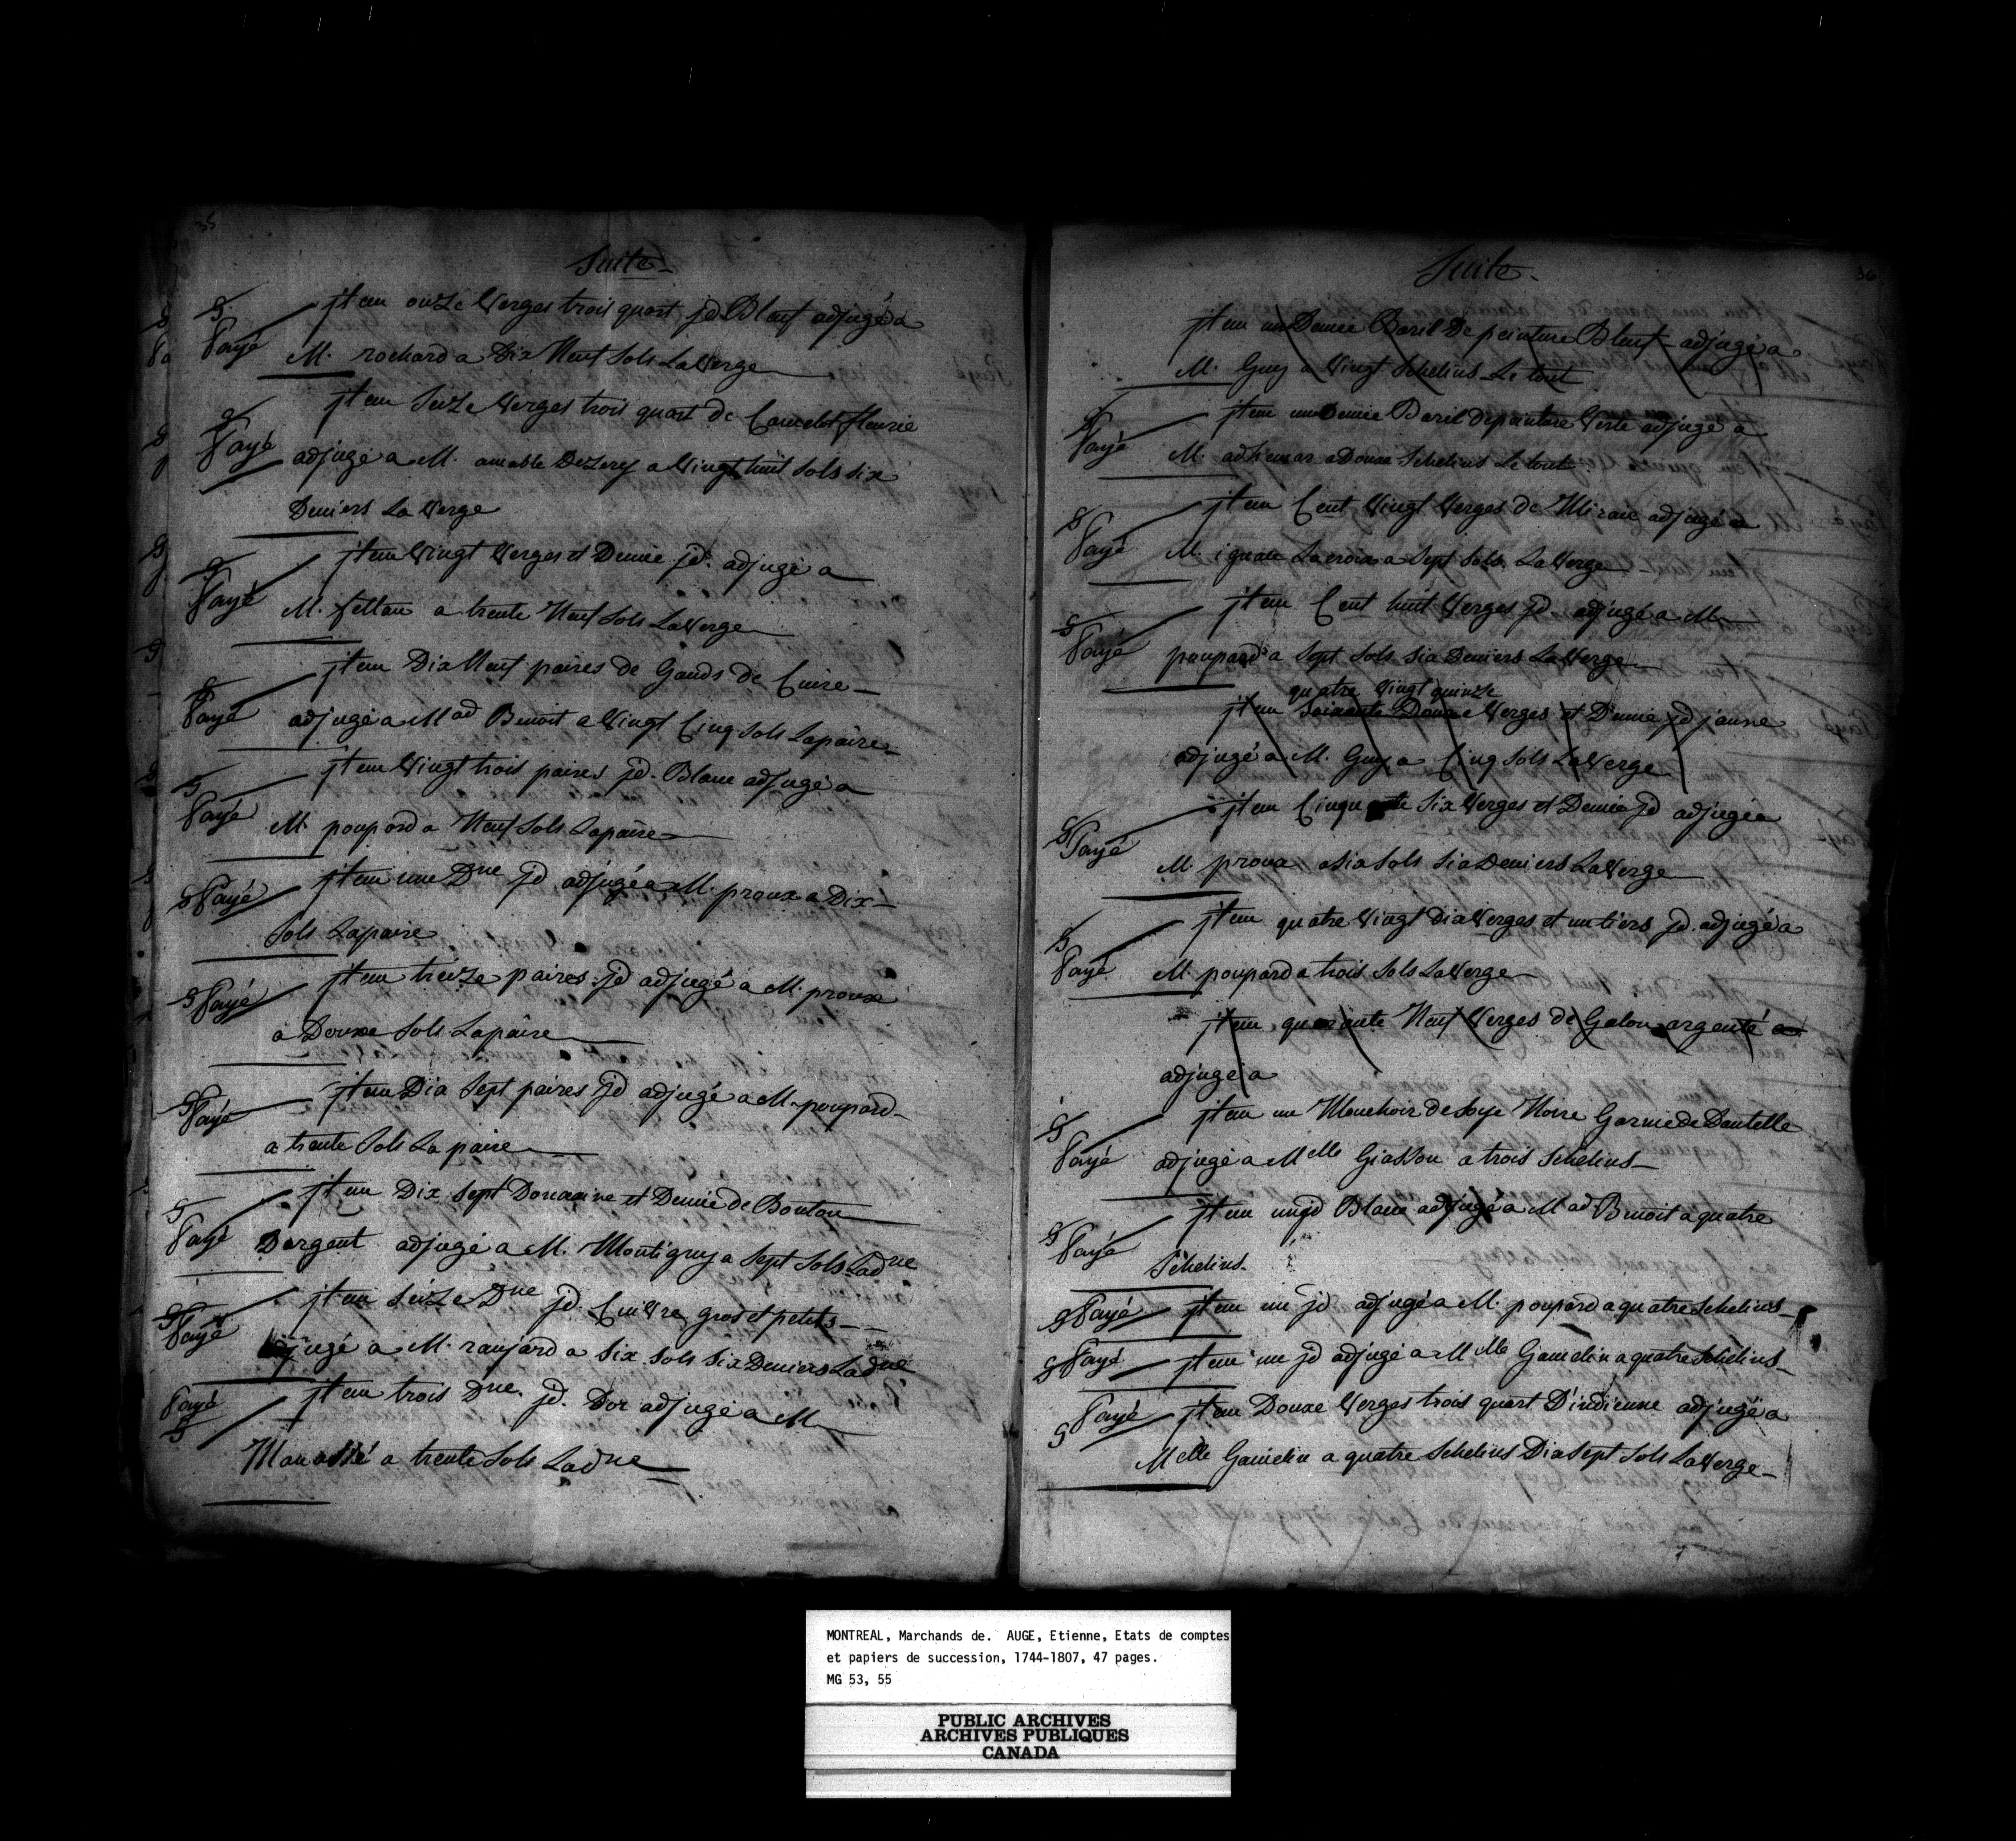 35
Suite
Payé
jtem onze Verges trois quart jd Bleuf adjugé a
M. rochard a Dix Neuf Sols La Verge
Payé
jtem Seize Verges trois quart de Camelot fleurie
adjugé a M. amable Dezerÿ a Vingt huit Sols six
Deniers La Verge
Payé
jtem Vingt Verges et Demie jd. adjugé a
M. feltau a trente Neuf Sols La Verge
Payé
jtem Dix Neuf paires de Gands de Cuire
adjugé a Mad Benoit a Vingt Cinq Sols La paire
Payé
jtem Vingt trois paires jd. Blanc adjugé a
M. poupard a Neuf Sols La paire
Payé
jtem une Dne jd adjugé a M. proux a Dix
Sols La paire
Payé
jtem treize paires jd adjugé a M. proux
a Douxe Sols La paire
Payé
jtem Dix Sept paires jd adjugé a M. poupard
a trente Sols La paire
Payé
jtem Dix Sept Douzaine et Demie de Bouton
Dargent adjugé a M. Montigny a Sept Sols La dne
Payé
jtem Seize Dne jd. Cuivre gros et petits
adjugé a M. ranjard a Six Sols Six Deniers La dne
Payé
jtem trois Dne. jd. Dor adjugé a M
Manassé a trente Sols La dne
36
Suite
jtem un Demie Baril De peinture Bleuf adjugé a
M. Guy a Vingt Schelins Le tout
Payé
jtem un Demie Baril de peinture Verte adjugé a
M. adhemar a Douxe Schelins Le tout
Payé
jtem Cent Vingt Verges de Miraie adjugé a
M. ignace Lacroix a Sept Sols La Verge
Payé
jtem Cent huit Verges jd adjugé a M
poupard a Sept Sols Six Deniers La Verge
quatre Vingt quinze
jtem Soixante Douxe Verges et Demie jd jaune
adjugé a M. Guy a Cinq Sols La Verge
Payé
jtem Cinquante Six Verges et Demie jd adjugé a
M proux a Six Sols Six Deniers La Verge
Payé
jtem quatre Vingt Dix Verges et un tiers jd. adjugé a
M. poupard a trois Sols La Verge
jtem quarante Neuf Verges de Galon argenté a
adjugé a
Payé
jtem un Mouchoir de Soye Noire Garnie de Dantelle
adjugé a Melle Giasson a trois Schelins
Payé
jtem un jd Blanc adjugé a Mad Benoit a quatre
Schelins
Payé
jtem un jd adjugé a M. poupard a quatre Schelins
Payé
jtem un jd adjugé a Melle Gamelin a quatre Schelins
Payé
jtem Douxe Verges trois quart D'indienne adjugé a
Melle Gamelin a quatre Schelins Dix Sept Sols La Verge
MONTREAL, Marchands de. AUGE, Etienne, Etats de comptes
et papiers de succession, 1744-1807, 47 pages.
MG 53, 55
PUBLIC ARCHIVES
ARCHIVES PUBLIQUES
CANADA